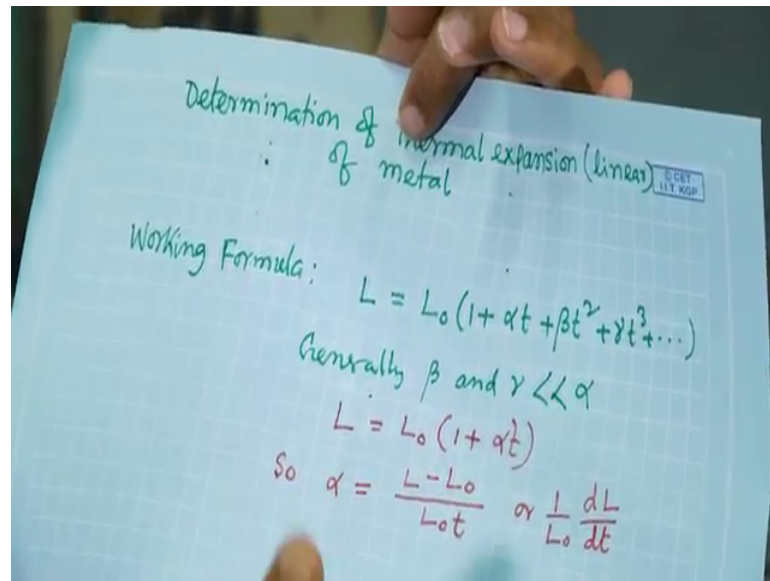 Determination of thermal expansion (linear)
of metal
© CET
I.I.T. KGP
Working Formula:
L = L₀ (1 + αt + βt² + γt³ + ...)
Generally β and γ << α
L = L₀ (1 + αt)
So α = (L - L₀) / (L₀t) or (1/L₀) (dL/dt)